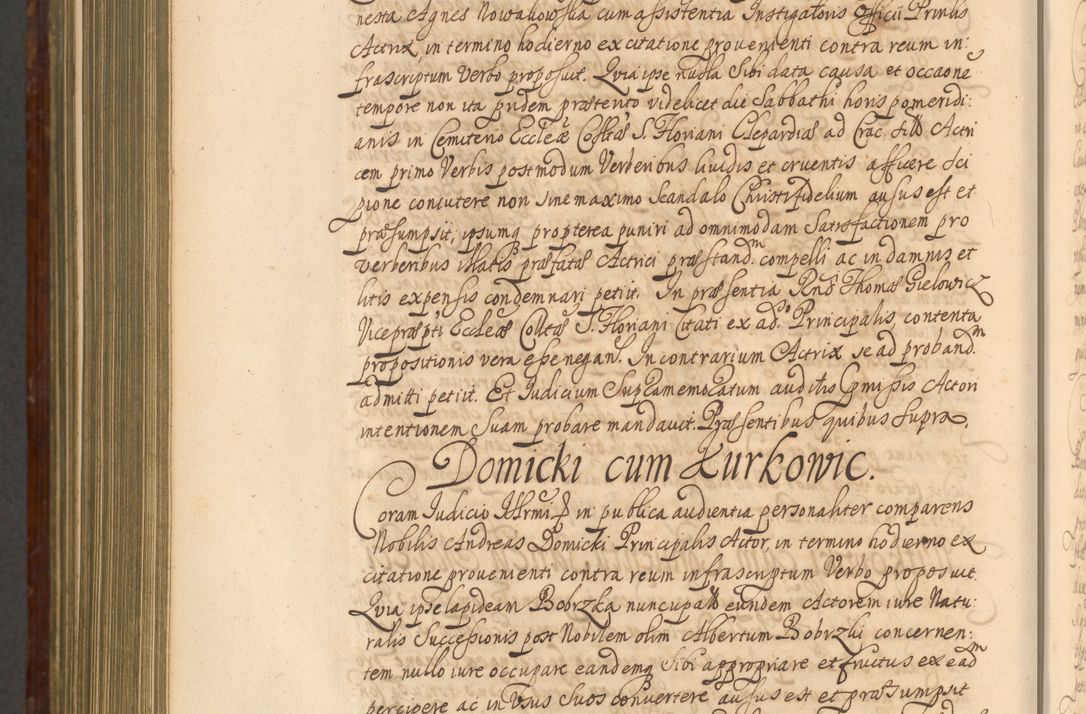 nesta Agnes Nowakowska cum assistentia Instigatoris Officii Prinlis
Actrix, in termino hodierno ex citatione provenienti contra reum in:
frascriptum Verbo proposuit. Quia ipse nulla Sibi data causa et occaone
tempore non ita pridem prætento videlicet die Sabbathi horis pomeridi:
anis in Cemiterio Eccleæ Collæ S. Floriani Clepardiæ ad Crac. sitto Actri
cem primo Verbis postmodum Verberibus lividis et cruentis afficere Sci
pione contutere non sine maximo Scandalo Christi fidelium ausus est et
præsumpsit, ipsumq propterea puniri ad omnimodam Satisfactionem pro
verberibus illatis præfatæ Actrici præstandm compelli ac in damnis et
litis expensis condemnari petiit. In præsentia Rndi Thomæ Gielowicz
Vicepræpti Eccleæ Colltæ S. Floriani Citati ex adso Principalis contenta
propositionis vera esse negan. In contrarium Actrix se ad proband.m
admitti petiit. Et Iudicium Supramemoratum auditis Præmissis Actori
intentionem Suam probare mandavit. Præsentibus quibus supra.
Domicki cum Kurkowic.
Coram Iudicio in publica audientia personaliter comparens
Nobilis Andreas Domicki Principalis Actor, in termino hodierno ex
citatione provenienti contra reum infrascriptum Verbo proposuit.
Quia ipse lapideam Bobrzka nuncupatt eundem Actorem iure Natu:
ralis Successionis post Nobilem olim Albertum Bobrzki concernen:
tem nullo iure occupare eandemq Sibi appropriare et fructus ex eadm
percipere ac in Usus Suos convertere ausus est et præsumpsit